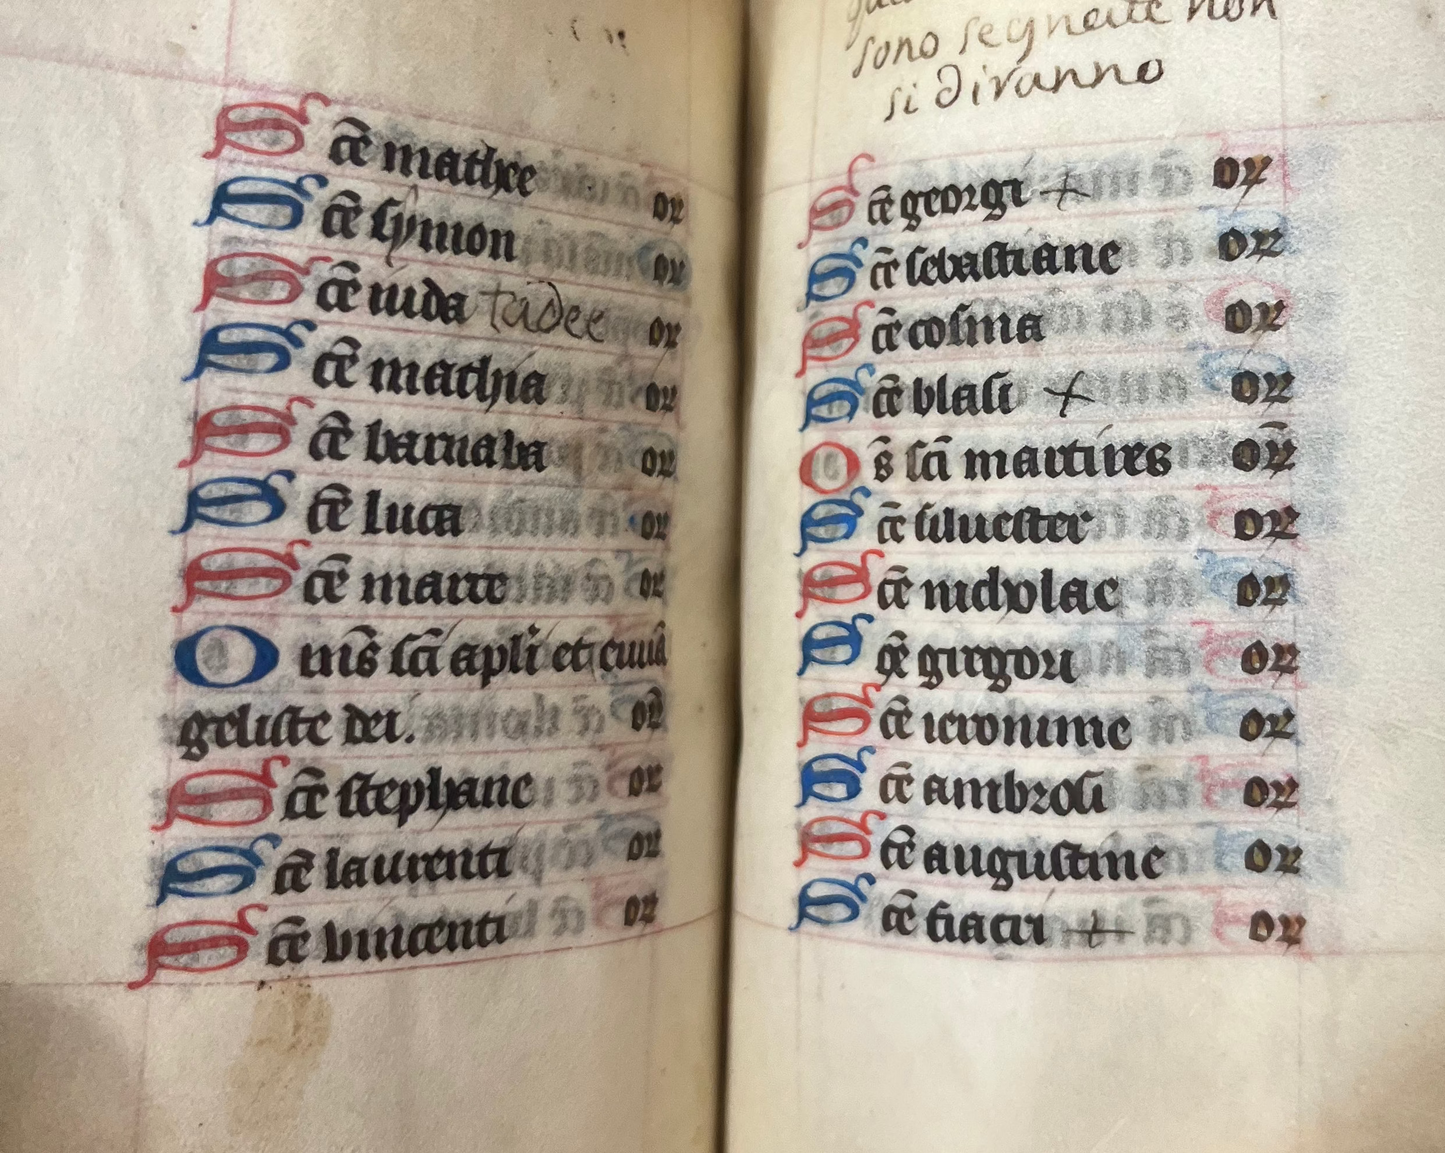 Sce mathee or
Sce symon or
Sce iuda tadee or
Sce mathia or
Sce barnaba or
Sce luca or
Sce marce or
Oms sci apli et euua
geliste dei. or
Sce stephane or
Sce laurenti or
Sce vincenti or
sono segnate non
si diranno
Sce georgi + or
Sce sebastiane or
Sce cosma or
Sce blasi + or
Os sci martires or
Sce siluester or
Sce nicholae or
Sce girgori or
Sce ieronime or
Sce ambrosi or
Sce augustine or
Sce fiacri + or